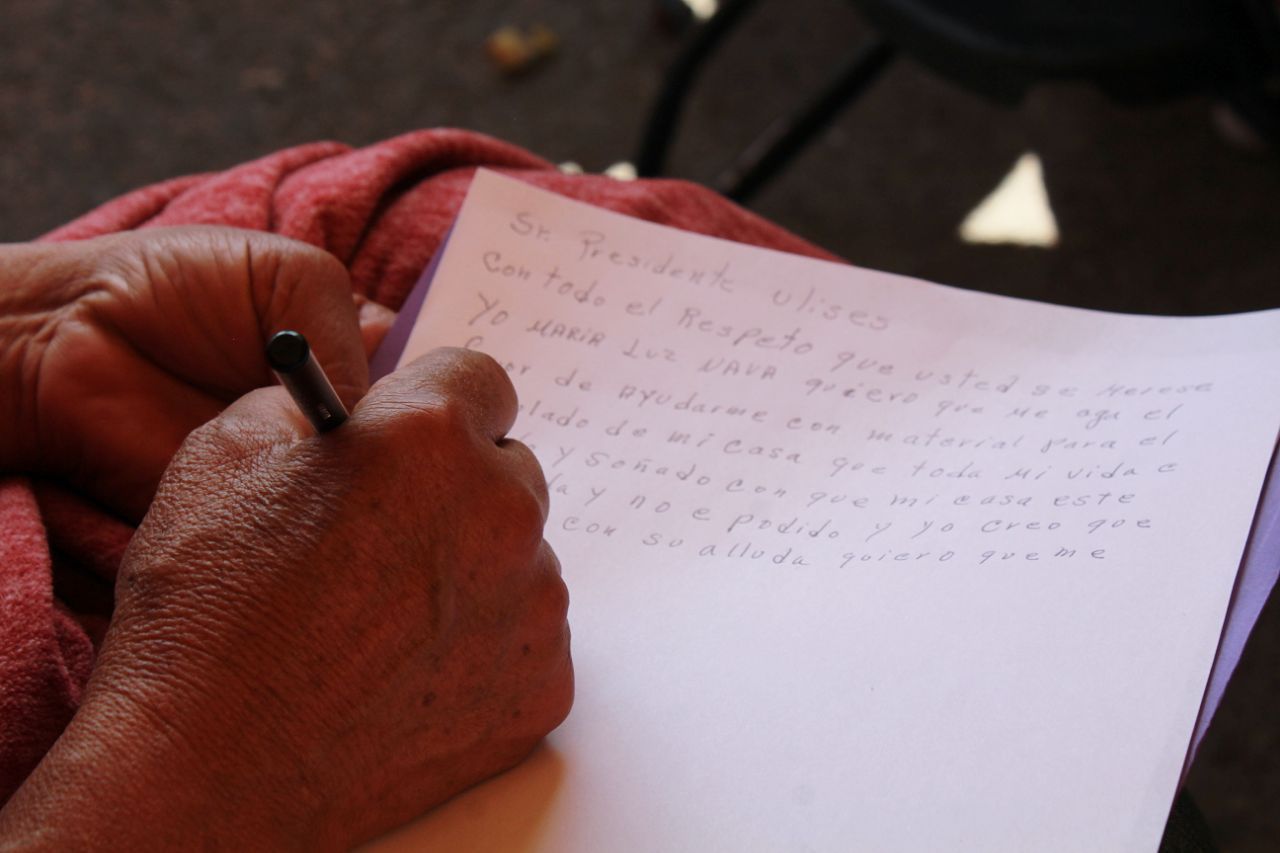 Sr. Presidente Ulises
Con todo el Respeto que usted se Merese
Yo MARIA Luz NAVA quiero que Me aga el
de AYudarme con material para el
de mi casa que toda Mi vida e
y Soñado con que mi casa este
y no e podido y yo creo que
con su alluda quiero queme